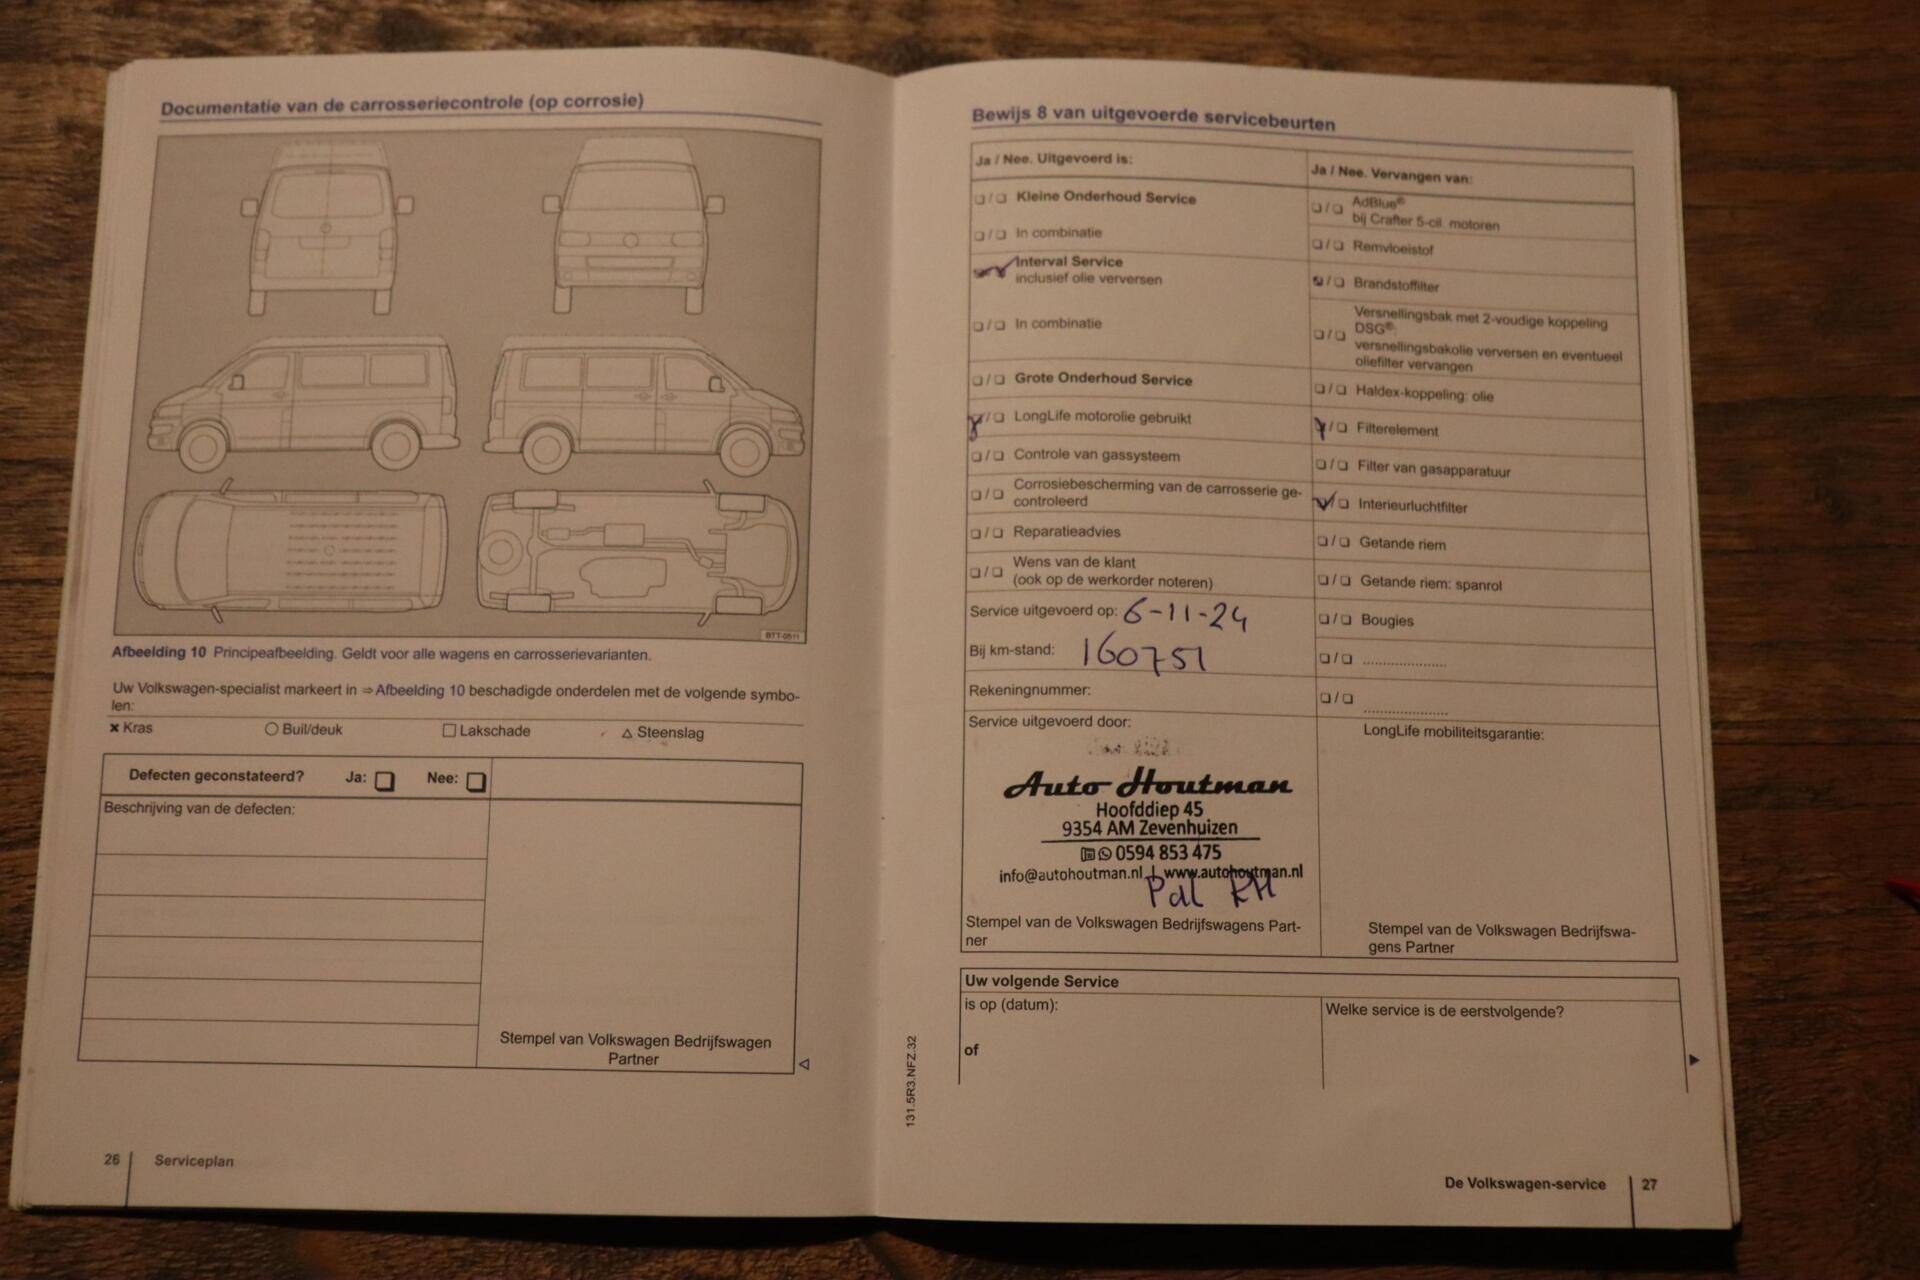 Documentatie van de carrosseriecontrole (op corrosie)
BTT-0511
Afbeelding 10 Principeafbeelding. Geldt voor alle wagens en carrosserievarianten.
Uw Volkswagen-specialist markeert in ⇒ Afbeelding 10 beschadigde onderdelen met de volgende symbo-
len:
× Kras ○ Buil/deuk □ Lakschade △ Steenslag
Defecten geconstateerd? Ja: ❑ Nee: ❑
Beschrijving van de defecten:
Stempel van Volkswagen Bedrijfswagen
Partner
26 Serviceplan
Bewijs 8 van uitgevoerde servicebeurten
Ja / Nee. Uitgevoerd is:
❑ / ❑ Kleine Onderhoud Service
❑ / ❑ In combinatie
Interval Service
inclusief olie verversen
❑ / ❑ In combinatie
❑ / ❑ Grote Onderhoud Service
❑ / ❑ LongLife motorolie gebruikt
❑ / ❑ Controle van gassysteem
❑ / ❑ Corrosiebescherming van de carrosserie ge-
controleerd
❑ / ❑ Reparatieadvies
❑ / ❑ Wens van de klant
(ook op de werkorder noteren)
Service uitgevoerd op: 6-11-24
Bij km-stand: 160751
Rekeningnummer:
Service uitgevoerd door:
Auto Houtman
Hoofddiep 45
9354 AM Zevenhuizen
0594 853 475
info@autohoutman.nl | www.autohoutman.nl
Pdl RH
Stempel van de Volkswagen Bedrijfswagens Part-
ner
Ja / Nee. Vervangen van:
❑ / ❑ AdBlue®
bij Crafter 5-cil. motoren
❑ / ❑ Remvloeistof
❑ / ❑ Brandstoffilter
Versnellingsbak met 2-voudige koppeling
❑ / ❑ DSG®:
versnellingsbakolie verversen en eventueel
oliefilter vervangen
❑ / ❑ Haldex-koppeling: olie
❑ / ❑ Filterelement
❑ / ❑ Filter van gasapparatuur
❑ / ❑ Interieurluchtfilter
❑ / ❑ Getande riem
❑ / ❑ Getande riem: spanrol
❑ / ❑ Bougies
❑ / ❑ .....................
❑ / ❑ .....................
LongLife mobiliteitsgarantie:
Stempel van de Volkswagen Bedrijfswa-
gens Partner
Uw volgende Service
is op (datum):
of
Welke service is de eerstvolgende?
131.5R3.NFZ.32
De Volkswagen-service 27